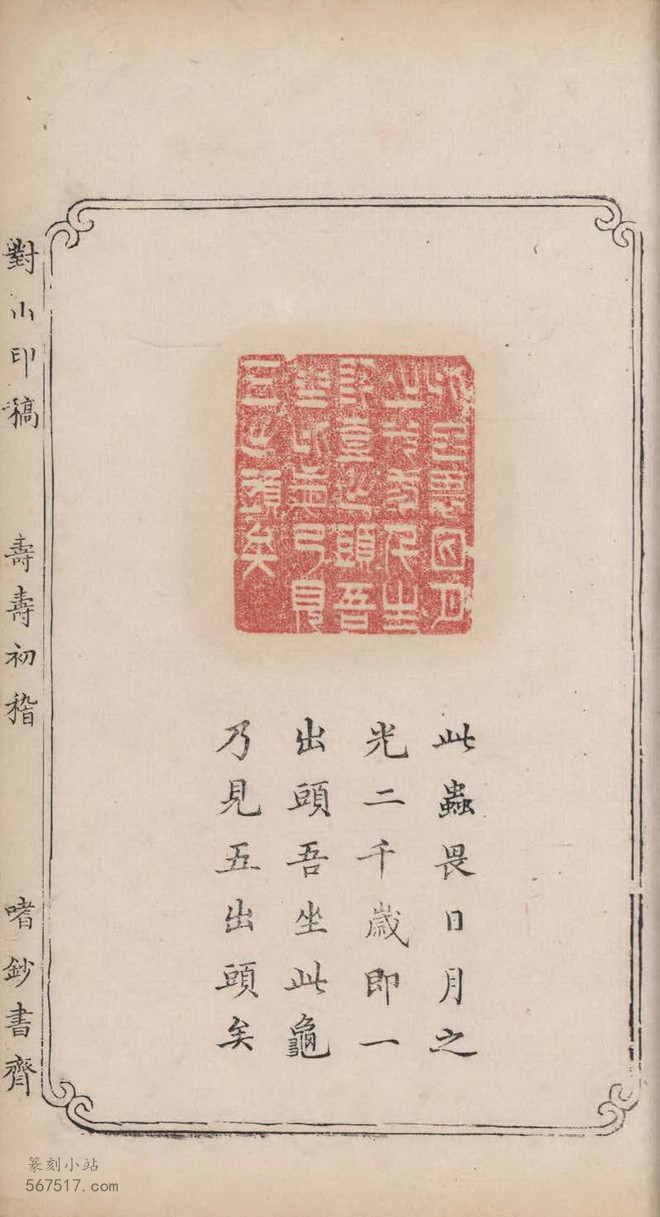 此蟲畏日月之
光二千歲即一
出頭吾坐此龜
乃見五出頭矣
對山印稿
壽壽初稽
嗜鈔書齊
篆刻小站
567517.com